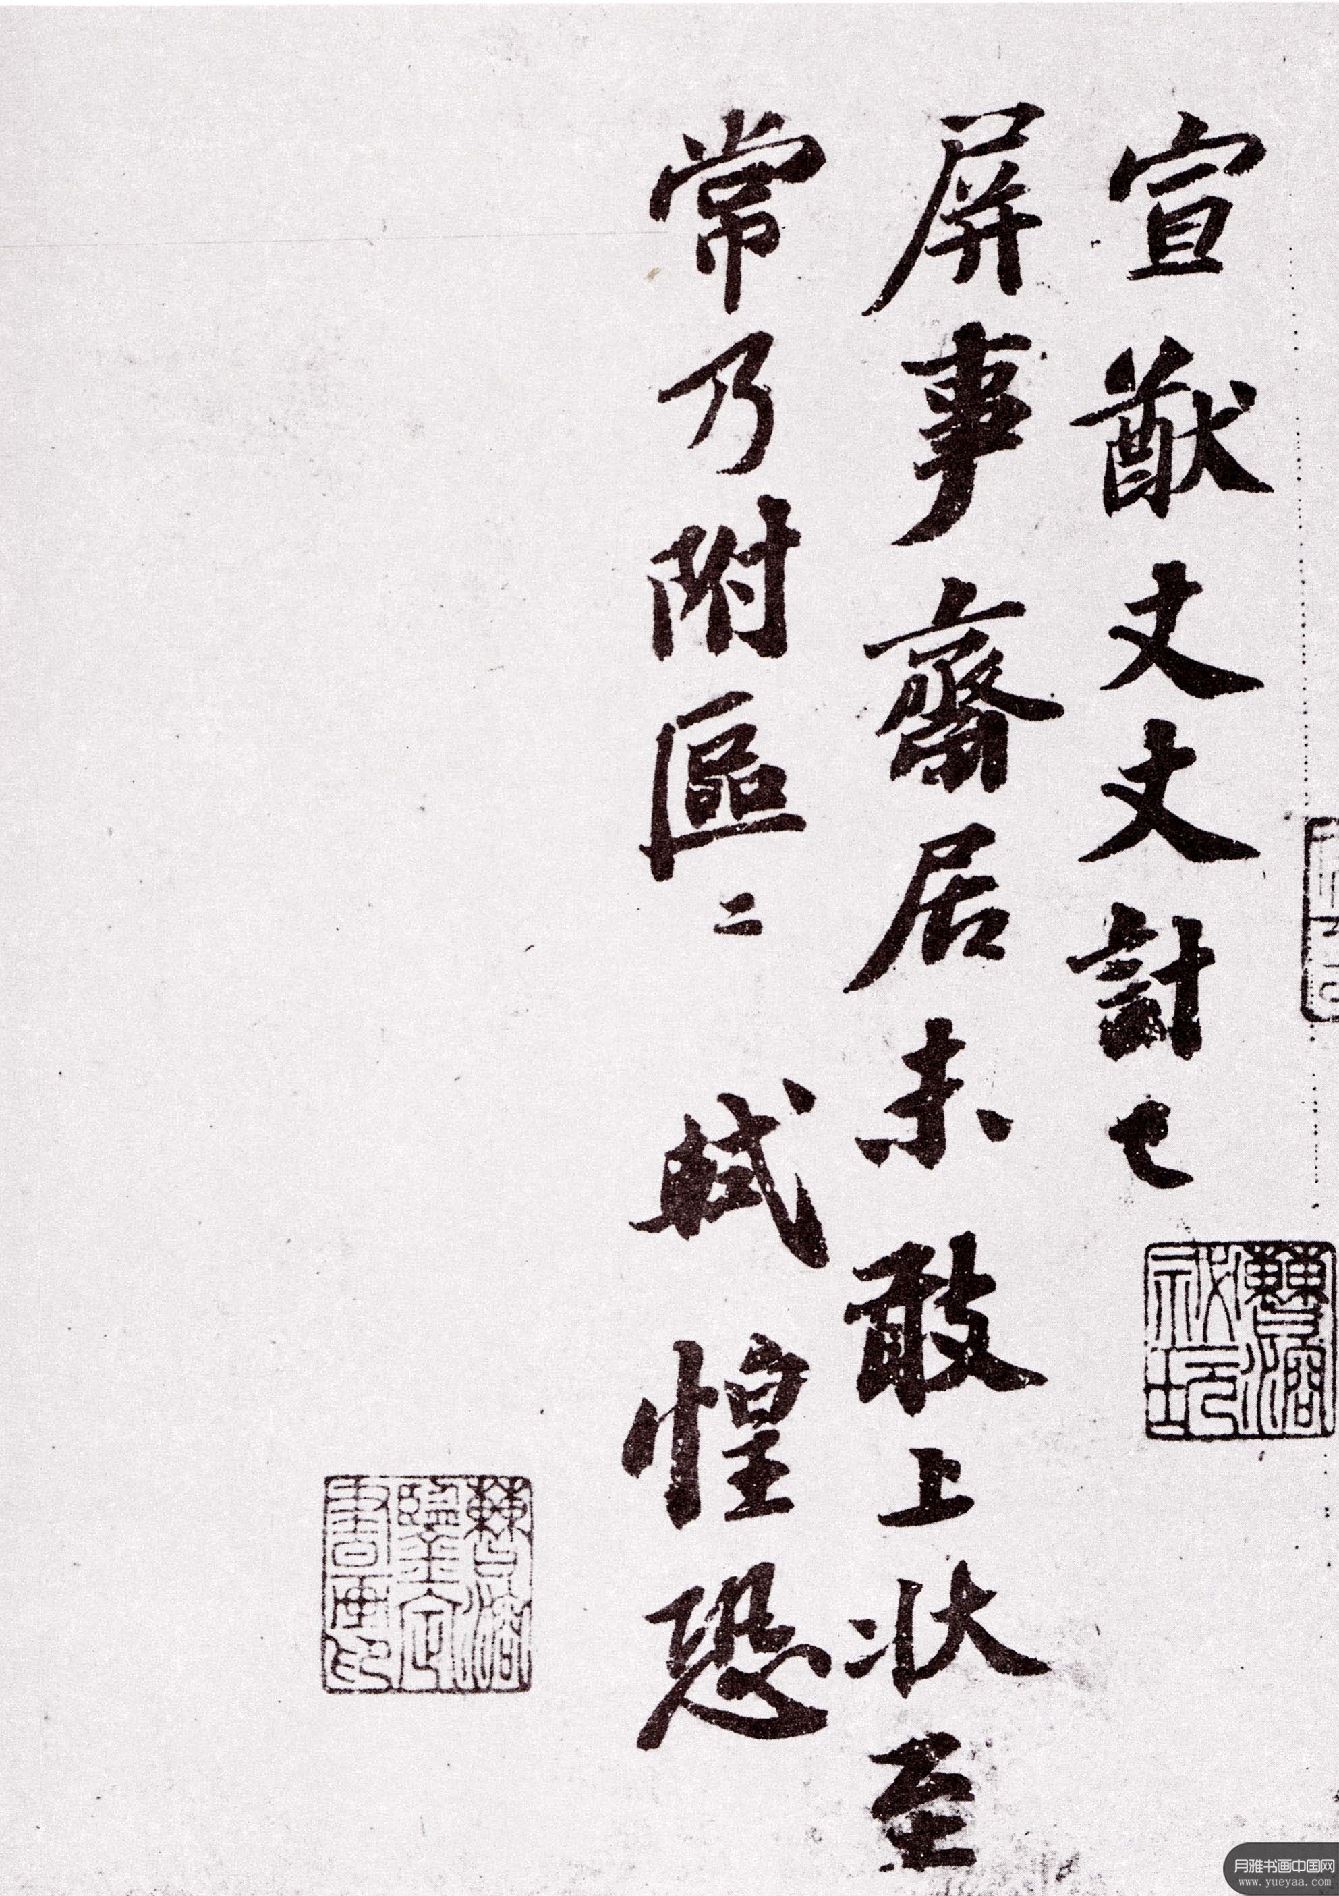 宣猷丈丈計已
屏事齋居未敢上狀至
常乃附區二 軾惶恐
曹溶鑒定書画印
月雅书画中国网
www.yueyaa.com